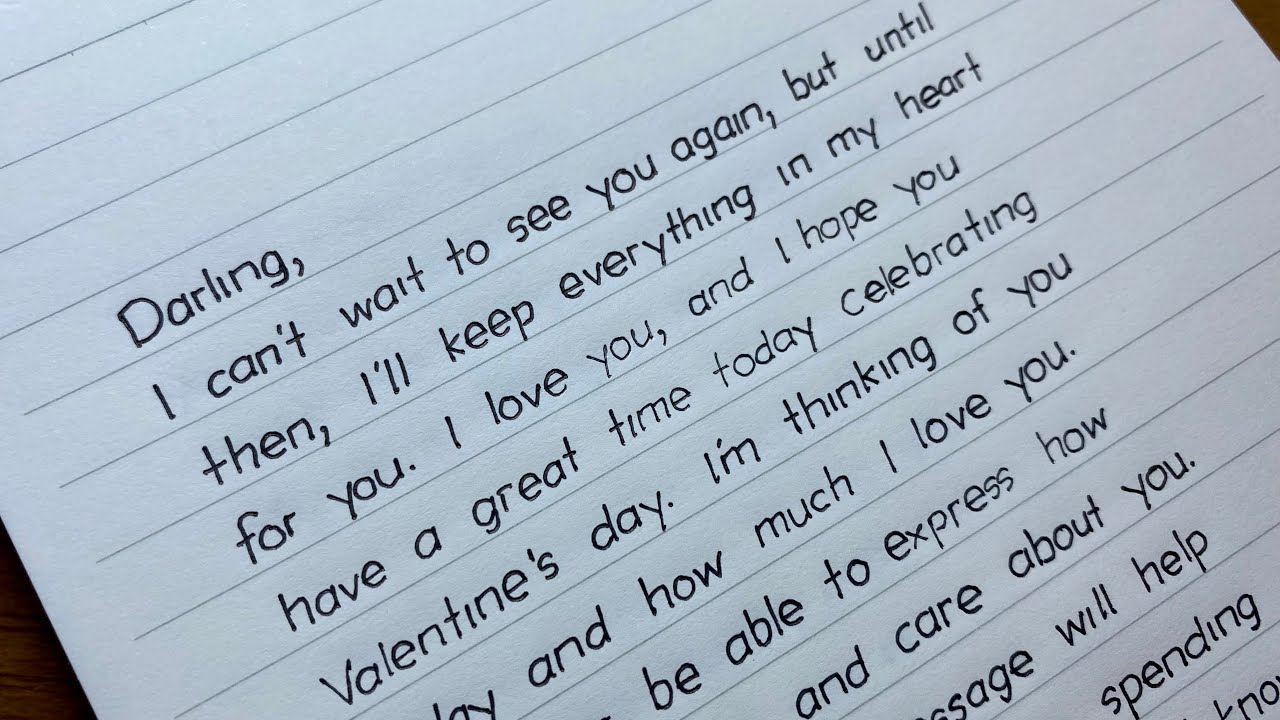 Darling,
I can't wait to see you again, but until
then, I'll keep everything in my heart
for you. I love you, and I hope you
have a great time today celebrating
Valentine's day. I'm thinking of you
and how much I love you.
be able to express how
and care about you.
will help
spending